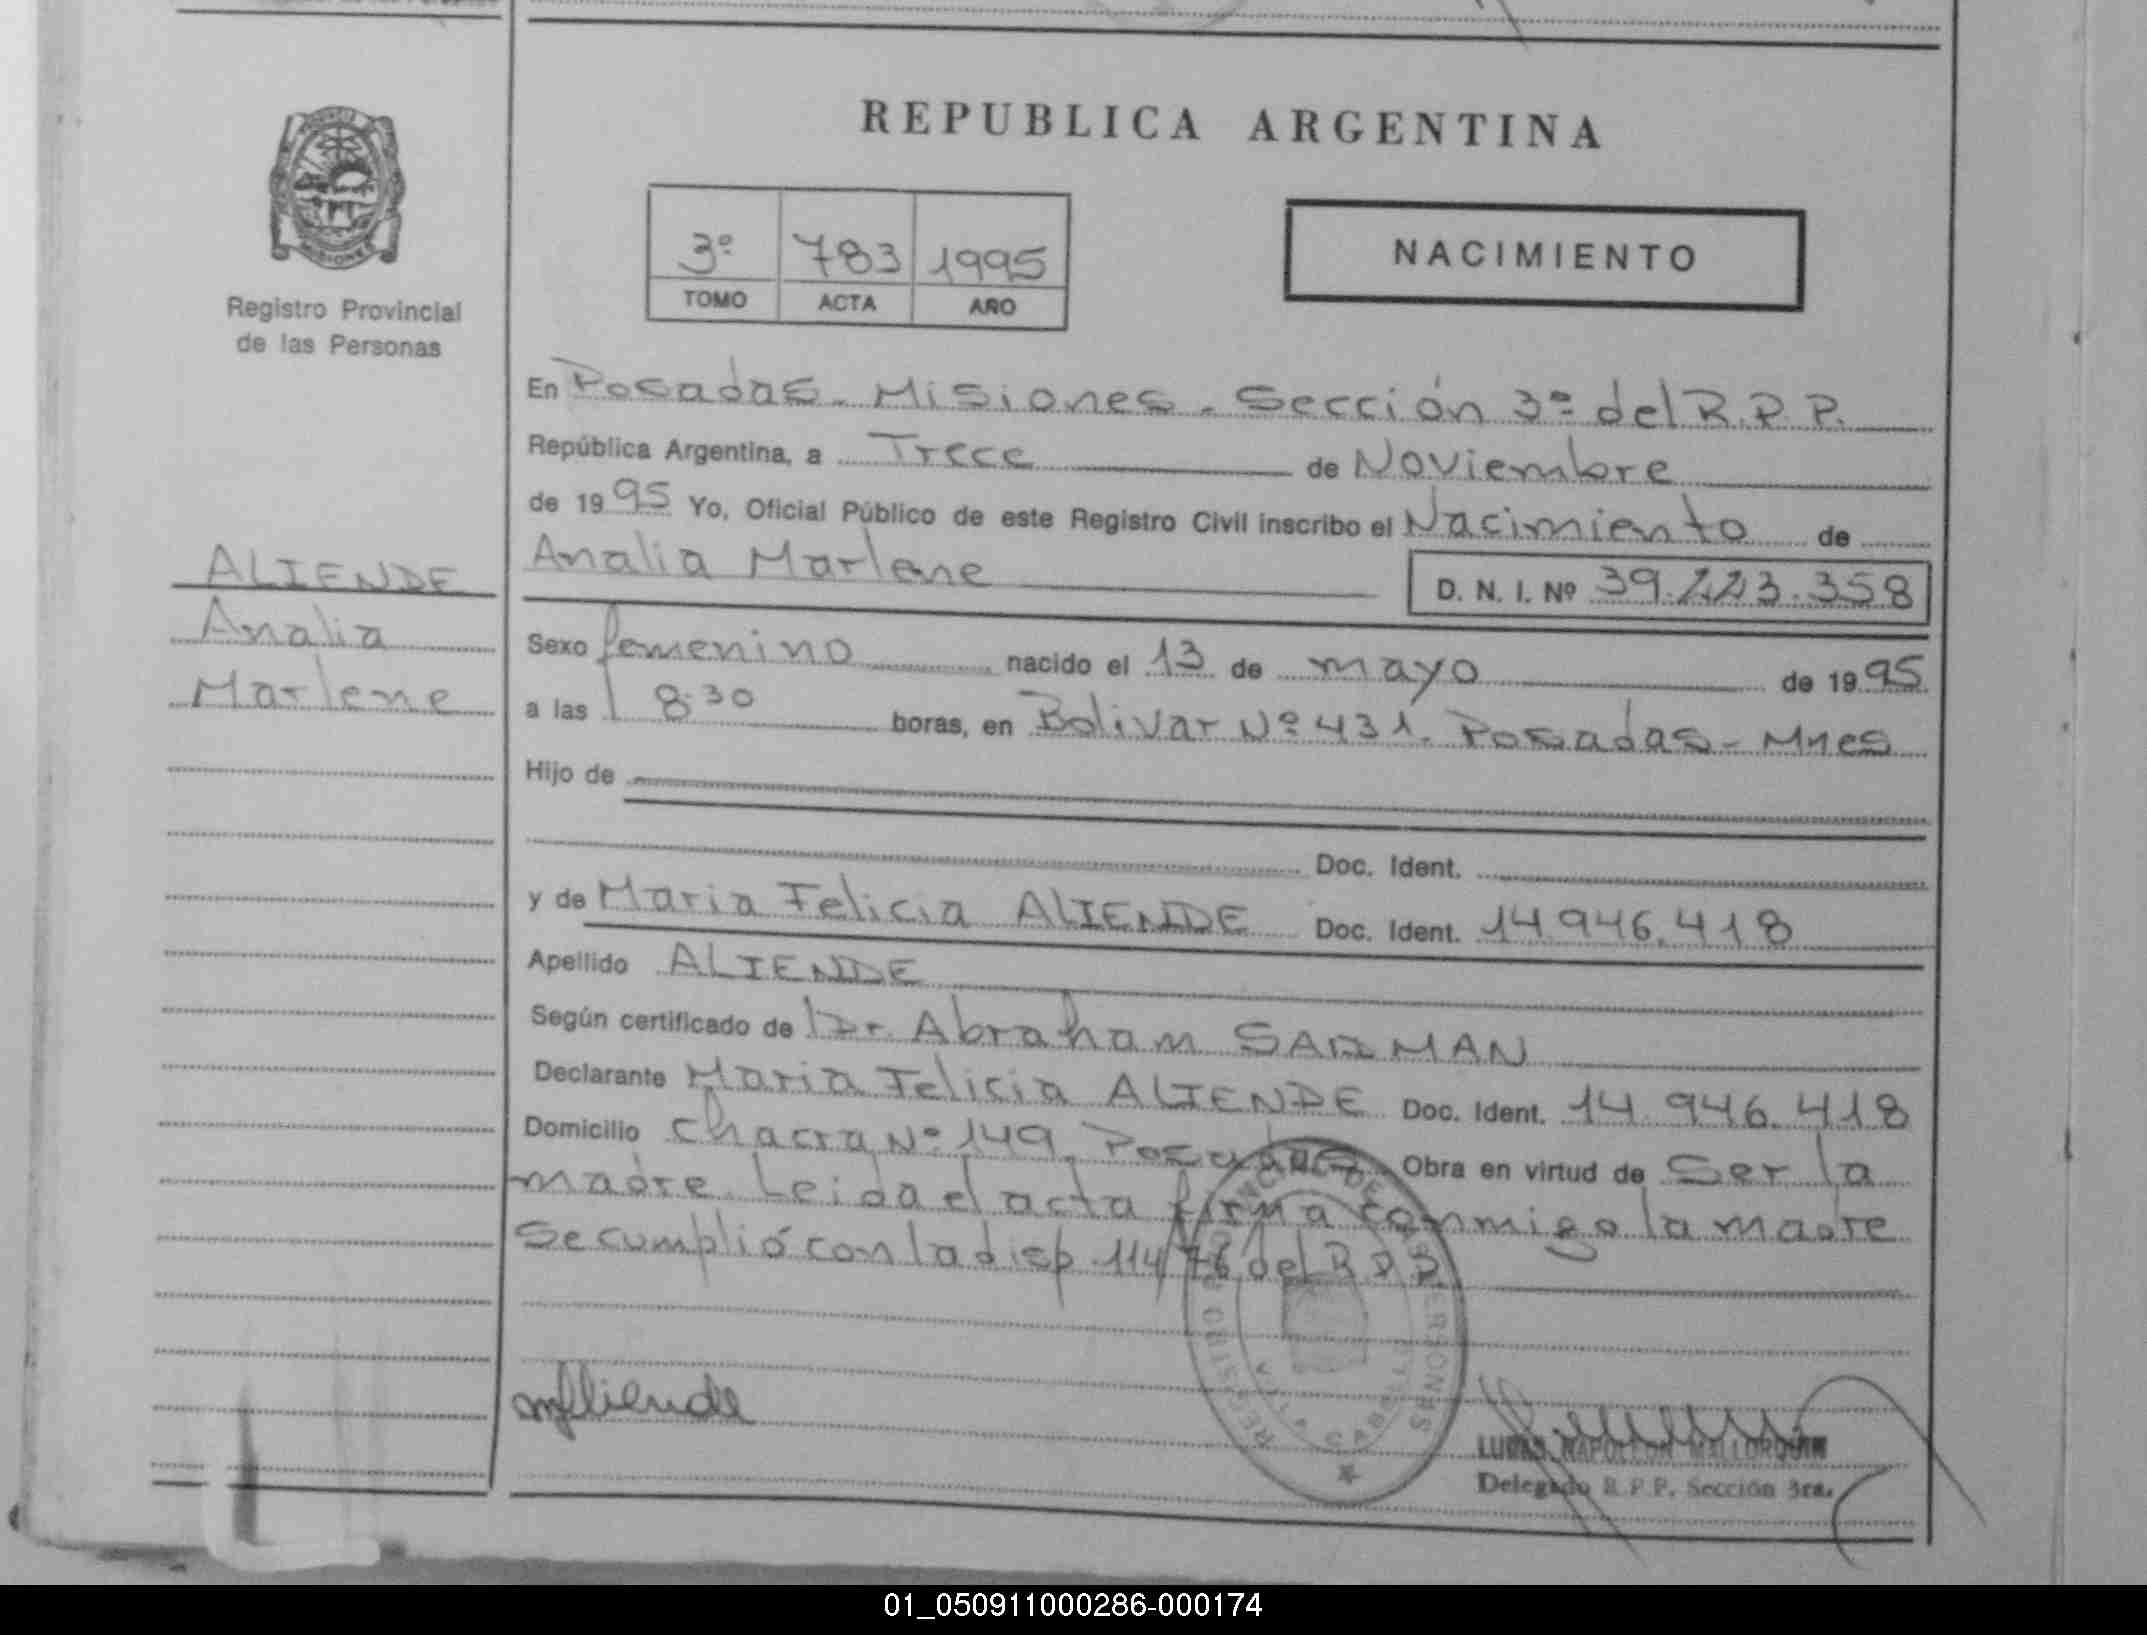 REPUBLICA ARGENTINA
MISIONES
Registro Provincial
de las Personas
3º 783 1995
TOMO ACTA AÑO
NACIMIENTO
En Posadas - Misiones - Sección 3º del R.P.P.
República Argentina, a Trece de Noviembre
de 1995 Yo, Oficial Público de este Registro Civil inscribo el Nacimiento de
Analia Marlene D. N. I. Nº 39.223.358
ALIENDE
Analia
Marlene
Sexo femenino nacido el 13 de mayo de 1995
a las 8:30 horas, en Bolivar Nº 431. Posadas - Mnes
Hijo de
Doc. Ident.
y de Maria Felicia ALIENDE Doc. Ident. 14.946.418
Apellido ALIENDE
Según certificado de Dr. Abraham
Declarante Maria Felicia ALIENDE Doc. Ident. 14.946.418
Domicilio Chacra Nº 149. Posadas Obra en virtud de Ser la
madre. Leida el acta firma conmigo la madre
Se cumplió con la disp. 114/76 del R.P.P.
REGISTRO PROVINCIAL DE LAS PERSONAS
mfAliende
LUCAS NAPOLEON MALLORQUIN
Delegado R.P.P. Sección 3ra.
01_050911000286-000174